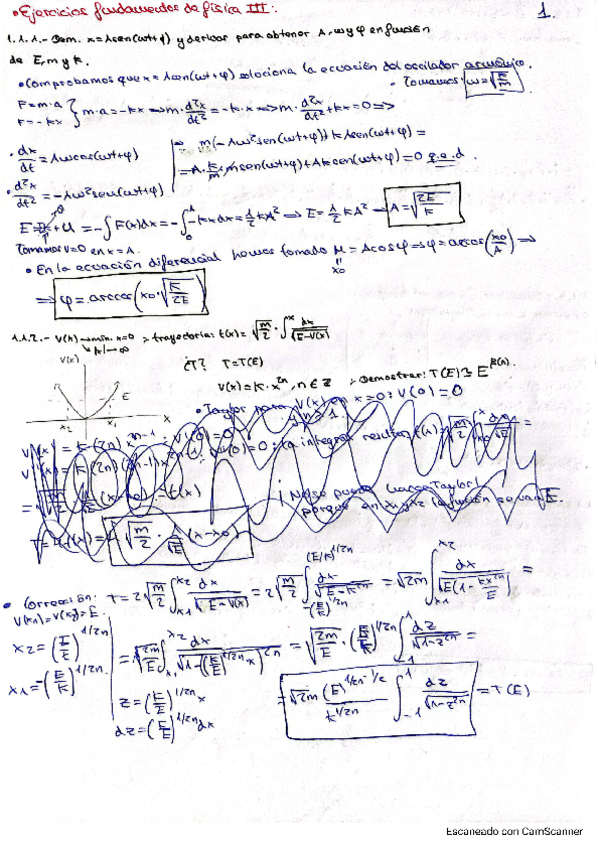 • Ejercicios fundamentos de física III: 1.
1.1.1.- Dem. x = A sen(ωt+φ) y derivar para obtener A, ω y φ en función
de E, m y k.
• Comprobamos que x = A sen(ωt+φ) soluciona la ecuación del oscilador armónico.
• Tomamos: ω = √(k/m)
F = m·a
F = -kx } m·a = -kx ⟹ m·d²x/dt² = -k·x ⟹ m·d²x/dt² + kx = 0 ⟹
· dx/dt = Aω cos(ωt+φ)
m(-Aω² sen(ωt+φ)) + kA sen(ωt+φ) =
= -A·k/m·m sen(ωt+φ) + Ak sen(ωt+φ) = 0 q.e.d.
· d²x/dt² = -Aω² sen(ωt+φ)
+ U = -∫F(x)dx = -∫₀ᴬ -kx dx = 1/2 kA² ⟹ E = 1/2 kA² ⟹ A = √(2E/k)
Tomamos v=0 en x=A.
• En la ecuación diferencial hemos tomado μ = A cosφ ⟹ φ = arccos(x0/A) ⟹
x0
⟹ φ = arccos(x0·√(k/2E))
1.1.2.- V(x) → mín. x=0, trayectoria: t(x) = √(m/2)·∫ˣ dx/√(E-V(x))
|x| → ∞
V(x)
¿T? T = T(E)
E
V(x) = k·x²ⁿ, n ∈ Z, Demostrar: T(E) ≃ E^β(n).
x₂ x₁ x
• Taylor para V(x) en x=0: V(0) = 0
n > 1.
V'(x) = k·(2n)x²ⁿ⁻¹ V'(0) = 0
= t(x)
¡No se puede hacer Taylor!
porque en x₁ y x₂
(x-x0)
• Corrección: T = 2√(m/2) ∫ₓ₁ˣ² dx/√(E-V(x)) = 2√(m/2) ∫_{-(E/k)^{1/2n}}^{(E/k)^{1/2n}} dx/√(E-kx²ⁿ) = √2m ∫ₓ₁ˣ² dx/√(E(1-kx²ⁿ/E)) =
V(x₁) = V(x₂) = E.
x₂ = (E/k)^{1/2n}
x₁ = -(E/k)^{1/2n}
= √(2m/E) ∫ₓ₁ˣ² dx/√(1-((k/E)^{1/2n}x)²ⁿ) = √(2m/E)·(E/k)^{1/2n} ∫₋₁¹ dz/√(1-z²ⁿ) =
z = (k/E)^{1/2n} x
dz = (k/E)^{1/2n} dx
= √2m (E)^{1/2n-1/2}/k^{1/2n} ∫₋₁¹ dz/√(1-z²ⁿ) = T(E)
Escaneado con CamScanner